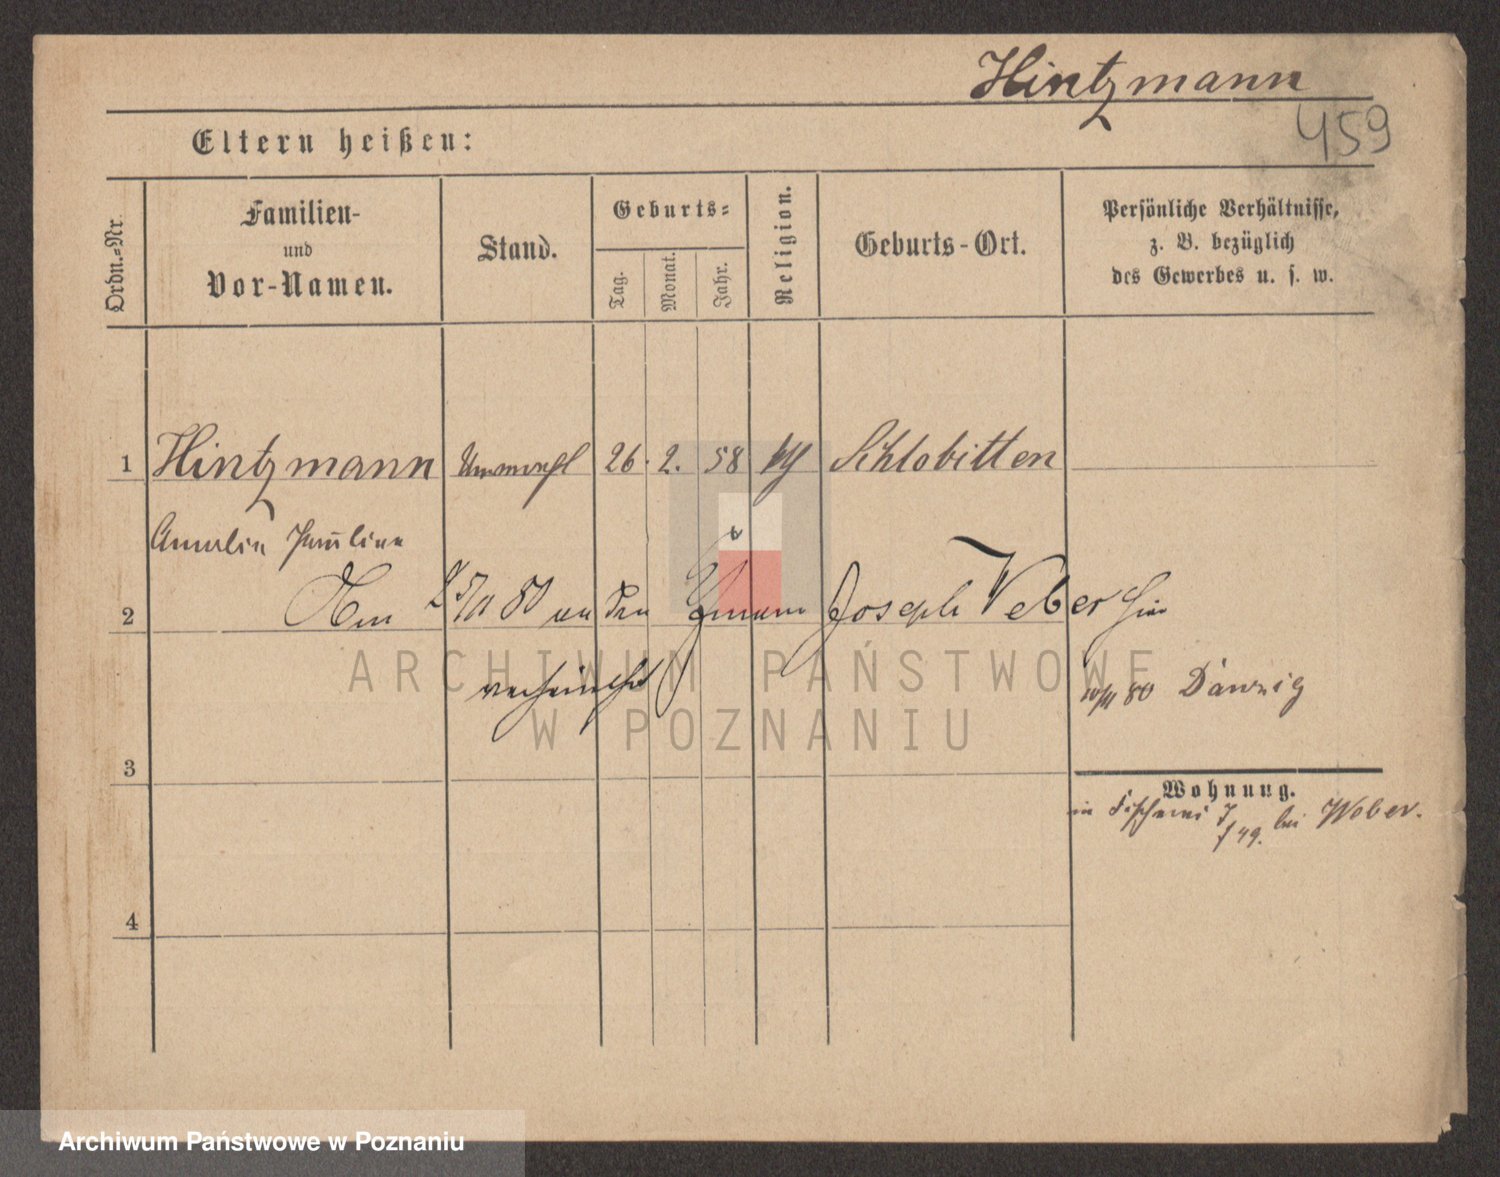 Hintzmann
459
Eltern heißen:
Ordn.-Nr.
Familien-
und
Vor-Namen.
Stand.
Geburts-
Tag.
Monat.
Jahr.
Religion.
Geburts-Ort.
Persönliche Verhältnisse,
z. B. bezüglich
des Gewerbes u. s. w.
1 Hintzmann 26. 2. 58 Schlobitten
Amalie Pauline
2 Am 80 an den Joseph Weber hier
verheirathet
80 Danzig
ARCHIWUM PAŃSTWOWE
W POZNANIU
3
Wohnung.
Fischerei 49. bei Weber.
4
Archiwum Państwowe w Poznaniu